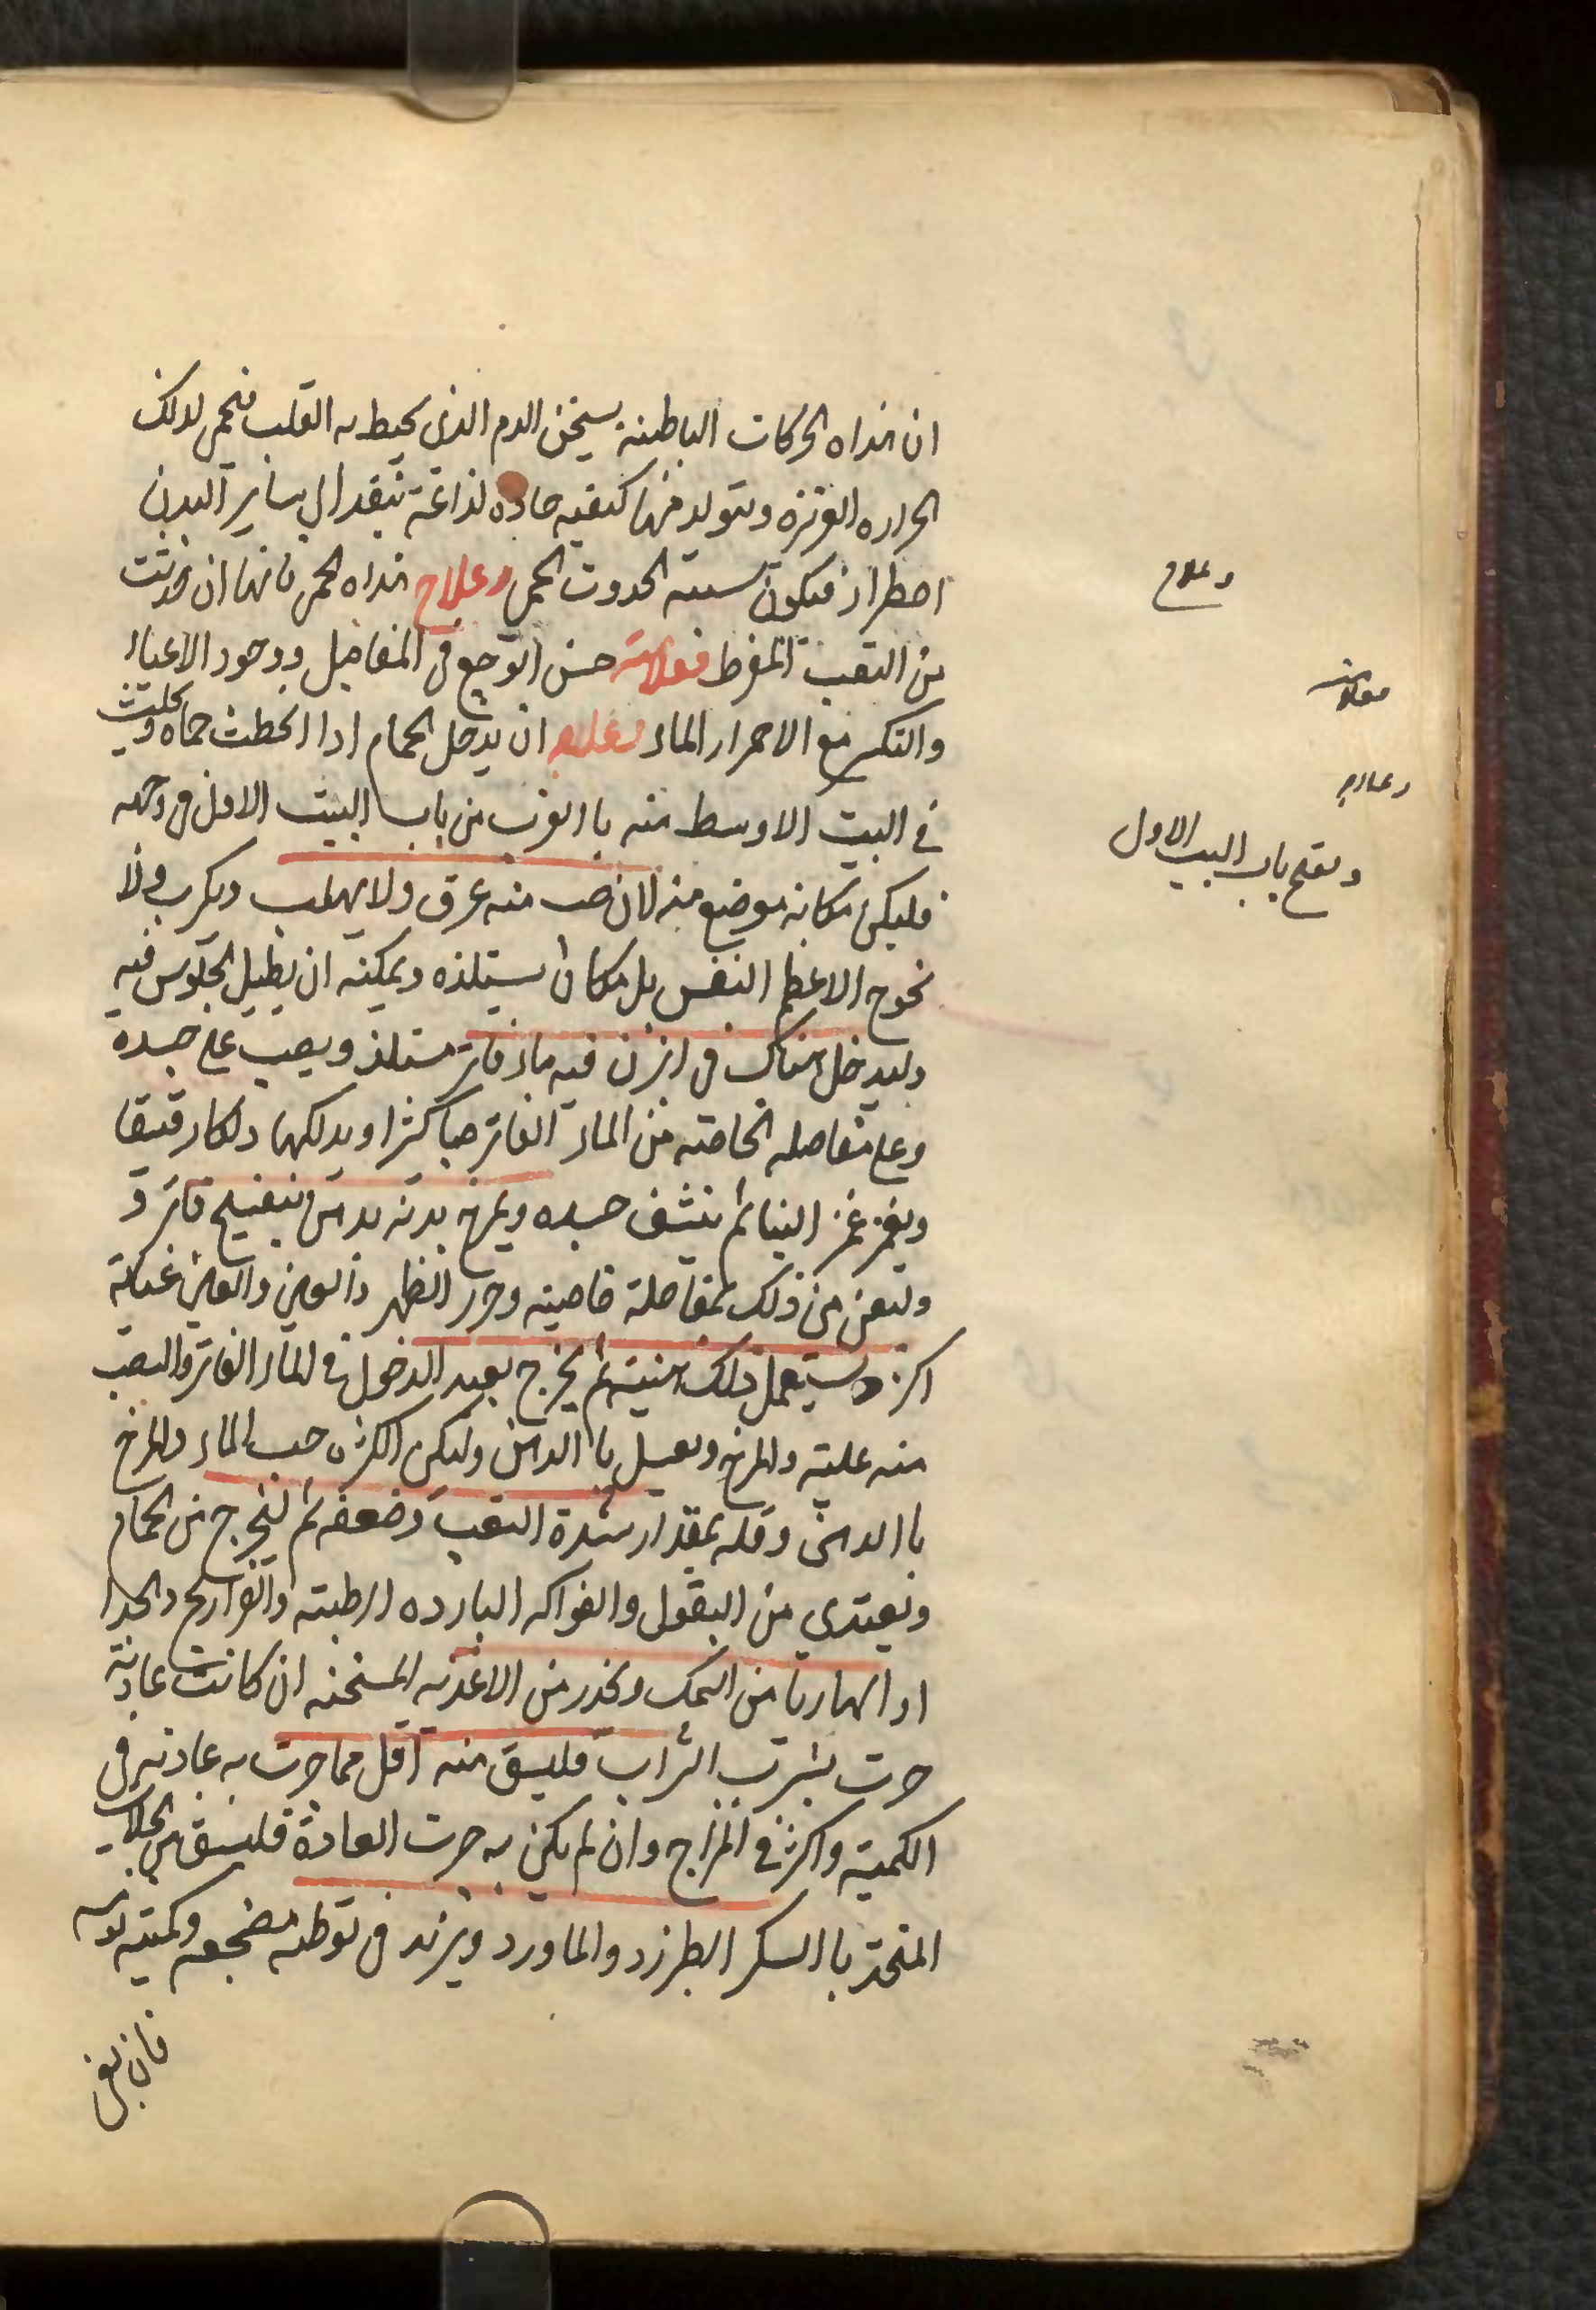 ان هذاه الحركات الباطنة يسخن الدم الذى يحيط به القلب فيحمى لذلك
الحراره الغريزه ويتولد منها كيفيه حاده لذاعة تنفد الى ساير البدن
اضطرار فيكون سببه لحدوث الحمى وعلاج هذاه الحمى فانها ان حدثت
من التعب المفرط فعلامته حسن التوجع فى المفاصل ووجود الاعياء
والتكسر مع الاحمرار الماء وعلاجه ان يدخل الحمام اذا انحطت حماه ويجلس
فى البيت الاوسط منه باالقرب من باب البيت الاول فى وجهه
فليكن مكانه موضع منه لان منه عرق ولا يهلب ويكرب ولا
نحوج الاعظم النفس بل مكان يستلذه ويمكنه ان يطيل الجلوس فيه
وليدخل هناك فى ابزن فيه ماء فاتر مستلذ ويصب على جسده
وعلى مفاصله الخاصته من الماء الفاتر صبا كثرا ويدلكها دلكا رقيقا
ويغمز غمز الينا ثم ينشف جسده ويمرخ بدنه بدهن بنفسج فاتر و
وليعن من ذلك بمفاصلة خاصيته وخرز الظهر والعين والعين عنايته
اكثر ويستعمل ذلك هنيئة ثم يخرج بعد الدخول فى الماء الفاتر والصب
منه عليه والمرخ ويغسل باالدهن وليكن الكثره صب الماء والمرخ
باالدهن وقله بمقدار شدة التعب وضعفه ثم ليخرج من الحمام
ويغتدى من البقول والفواكه البارده الرطبته والفراريج والجدا
او الهاربا من السمك ويحذر من الاغذيه المسخنه ان كانت عادته
جرت بشرب الشراب فليسق منه اقل مما جرت به عادته فى
الكميته واكثر فى المزاج وان لم يكن به جرت العادة فليسق من الجلاب
المتخذ باالسكر الطبرزد والماورد ويزيد فى توطئه مضجعه وكميته نومه
فان بقى
وعلاج
فعلامته
وعلاجه
ويفتح باب البيت الاول